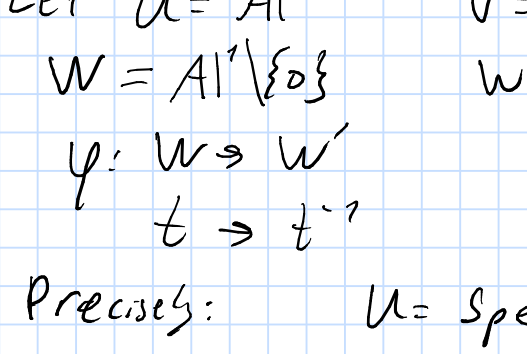 Let U = A1 V =
W = A1¹\{0} W
φ: W → W'
t → t⁻¹
Precisely: U = Spe